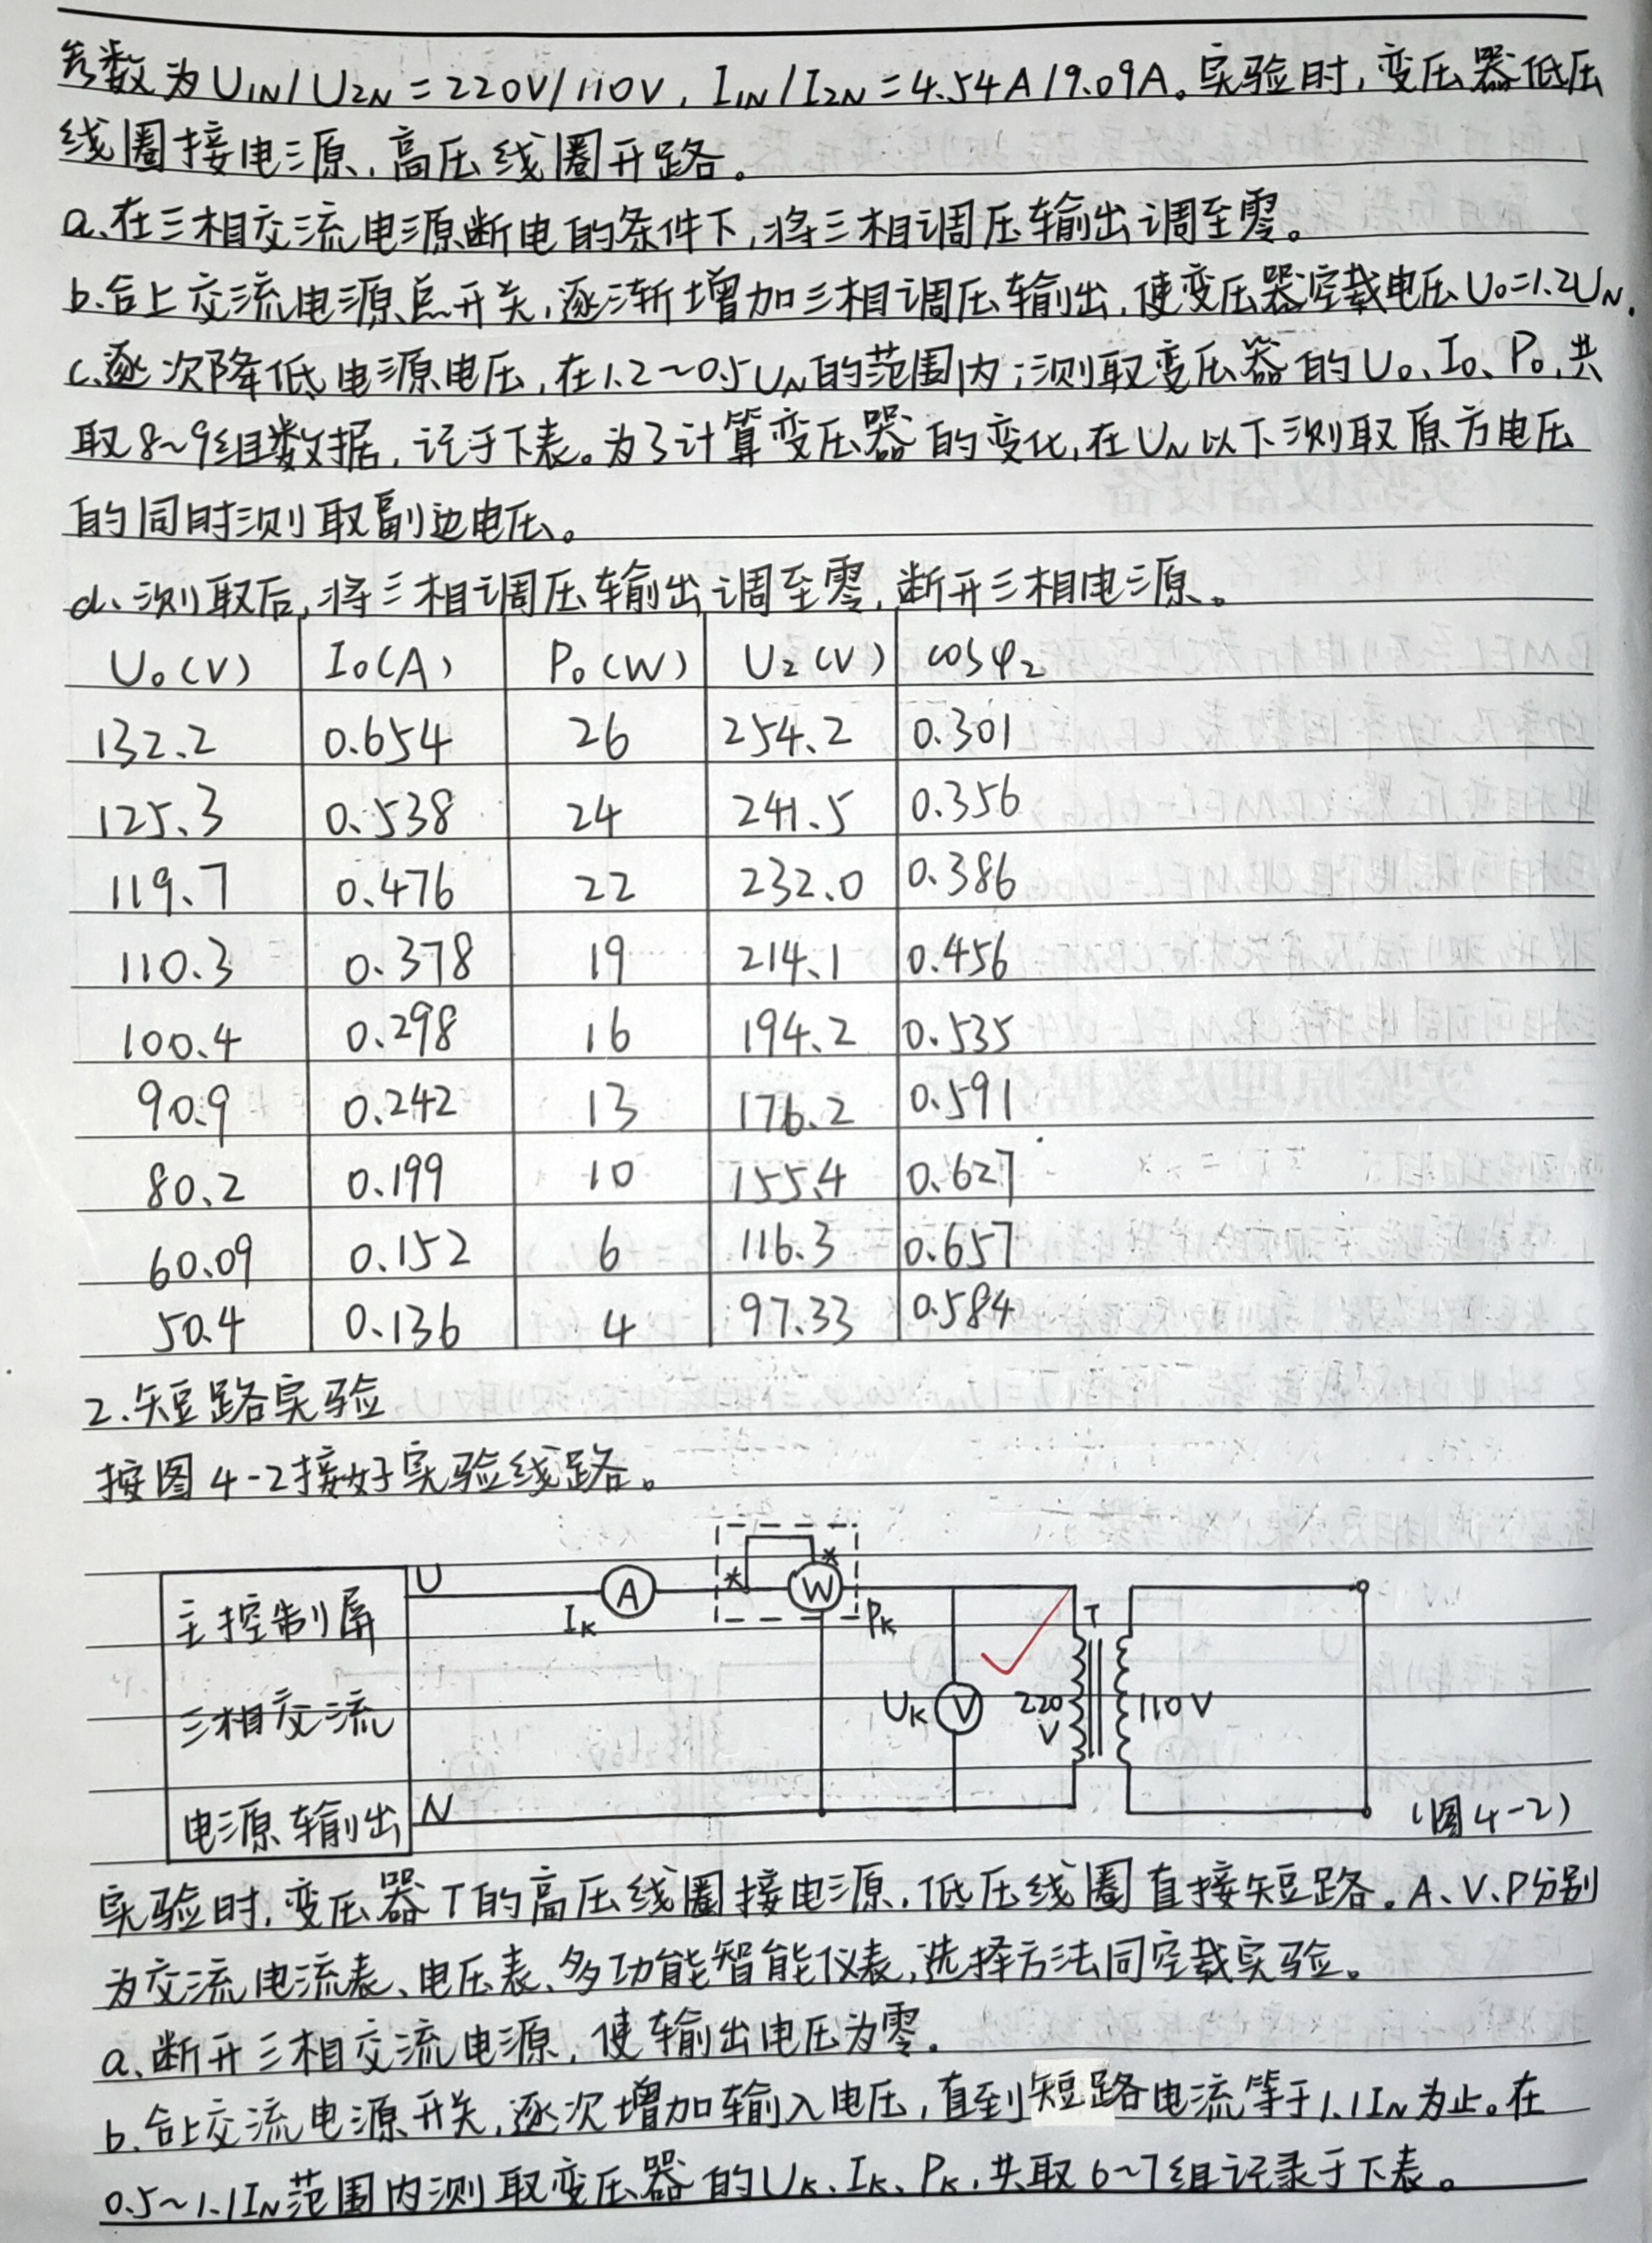 参数为U1N/U2N=220V/110V,I1N/I2N=4.54A/9.09A。实验时,变压器低压
线圈接电源,高压线圈开路。
a、在三相交流电源断电的条件下,将三相调压输出调至零。
b、合上交流电源总开关,逐渐增加三相调压输出,使变压器空载电压U0=1.2UN.
c、逐次降低电源电压,在1.2~0.5UN的范围内;测取变压器的U0、I0、P0,共
取8~9组数据,记于下表。为了计算变压器的变化,在UN以下测取原方电压
的同时测取副边电压。
d、测取后,将三相调压输出调至零,断开三相电源。
U0(V) I0(A) P0(W) U2(V) cosφ2
132.2 0.654 26 254.2 0.301
125.3 0.538 24 241.5 0.356
119.7 0.476 22 232.0 0.386
110.3 0.378 19 214.1 0.456
100.4 0.298 16 194.2 0.535
90.9 0.242 13 176.2 0.591
80.2 0.199 10 155.4 0.627
60.09 0.152 6 116.3 0.657
50.4 0.136 4 97.33 0.584
2.短路实验
按图4-2接好实验线路。
主控制屏
三相交流
电源输出
U
N
A
IK
*
*
W
PK
UK
V
T
220
V
110V
(图4-2)
实验时,变压器T的高压线圈接电源,低压线圈直接短路。A、V、P分别
为交流电流表、电压表、多功能智能仪表,选择方法同空载实验。
a、断开三相交流电源,使输出电压为零。
b、合上交流电源开关,逐次增加输入电压,直到短路电流等于1.1IN为止。在
0.5~1.1IN范围内测取变压器的UK、IK、PK,共取6~7组记录于下表。